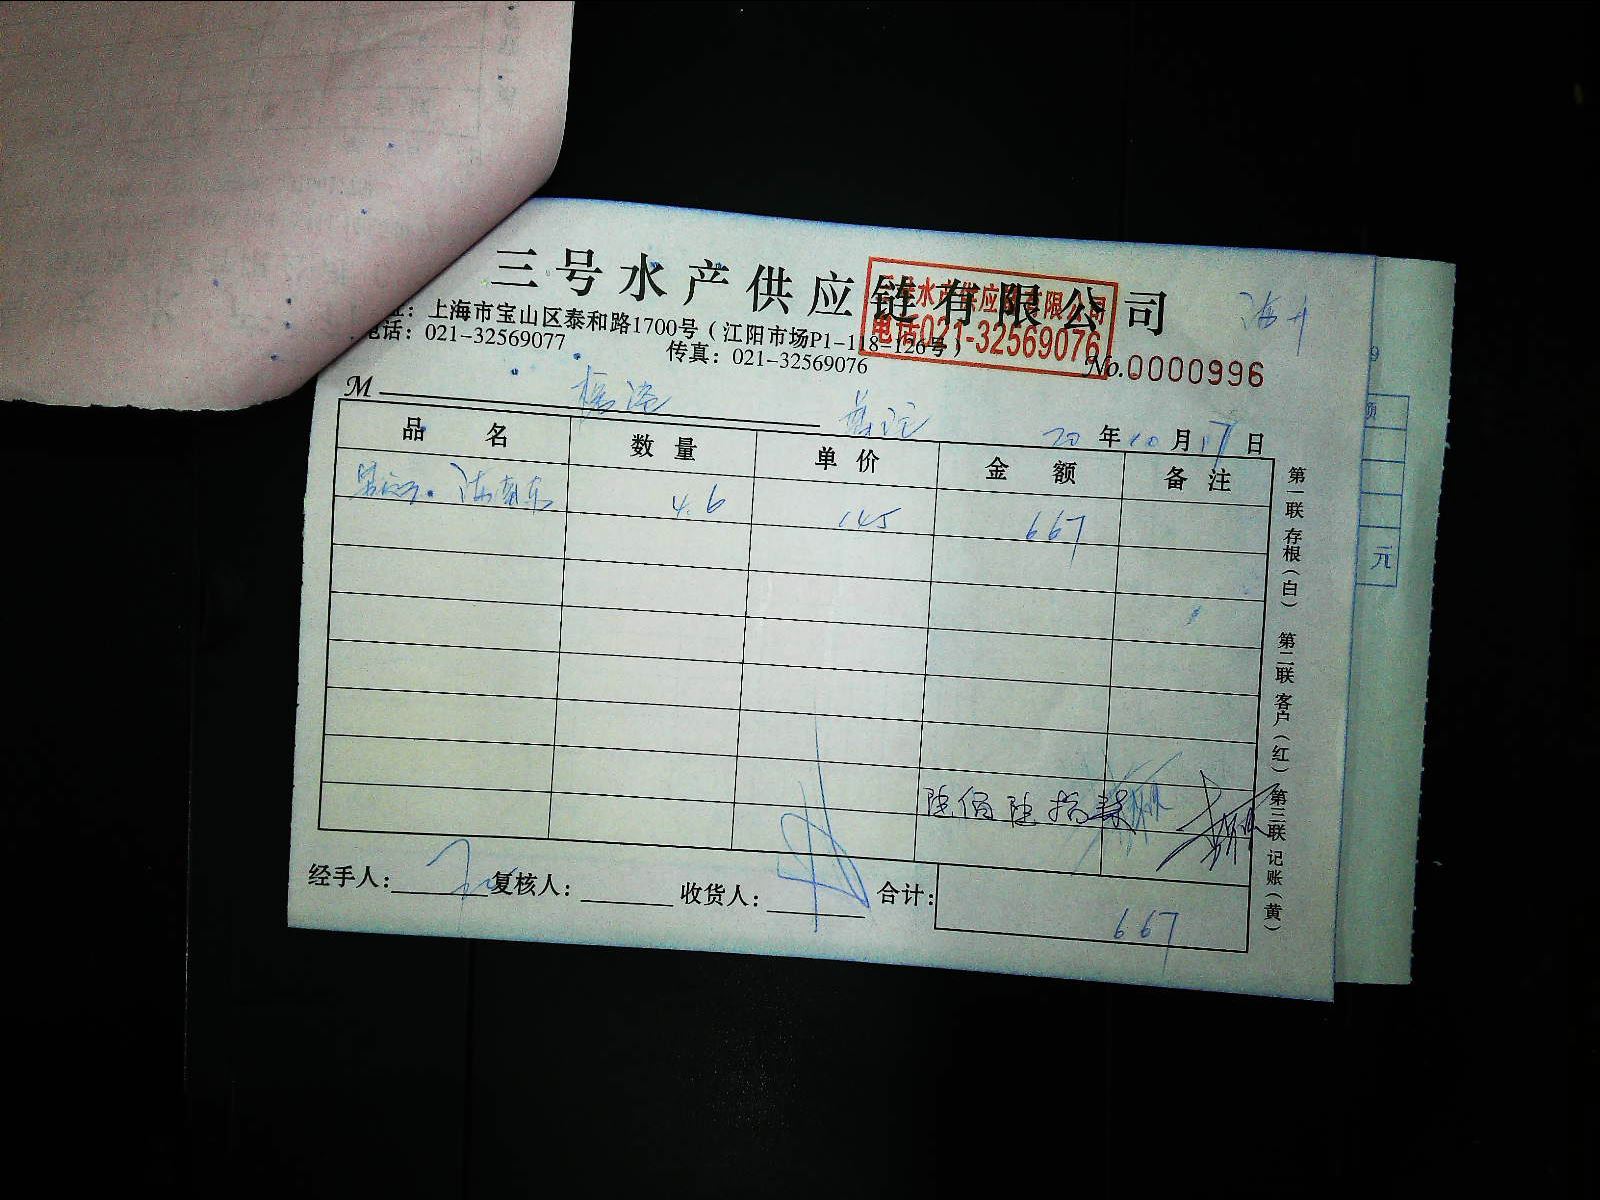 三号水产供应链有限公司
三号水产供应链有限公司
电话021-32569076
址：上海市宝山区泰和路1700号（江阳市场P1-118-126号）
电话：021-32569077
传真：021-32569076
No.0000996
M
20 年 10 月 17 日
品 名 数 量 单 价 金 额 备 注
4.6 145 667
经手人： 复核人： 收货人： 合计：
667
第一联 存根（白） 第二联 客户（红） 第三联 记账（黄）
元